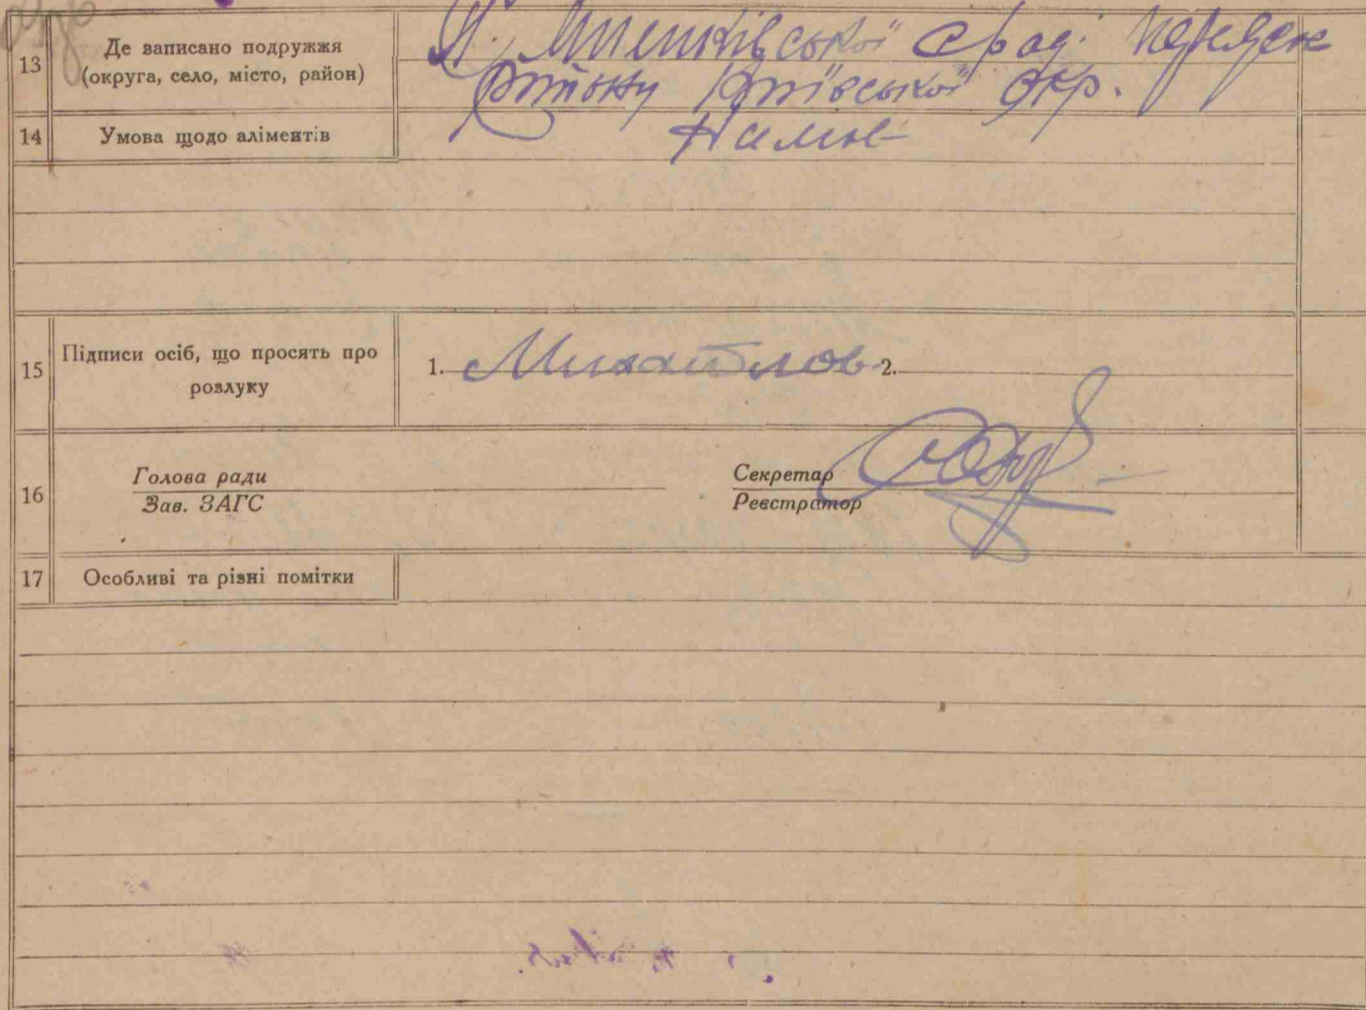 13 Де записано подружжя
(округа, село, місто, район)
сради
району Київської окр.
14 Умова щодо аліментів
Немає
15 Підписи осіб, що просять про
розлуку
1. Михайлов 2.
16 Голова ради
Зав. ЗАГС
Секретар
Реєстратор
17 Особливі та різні помітки